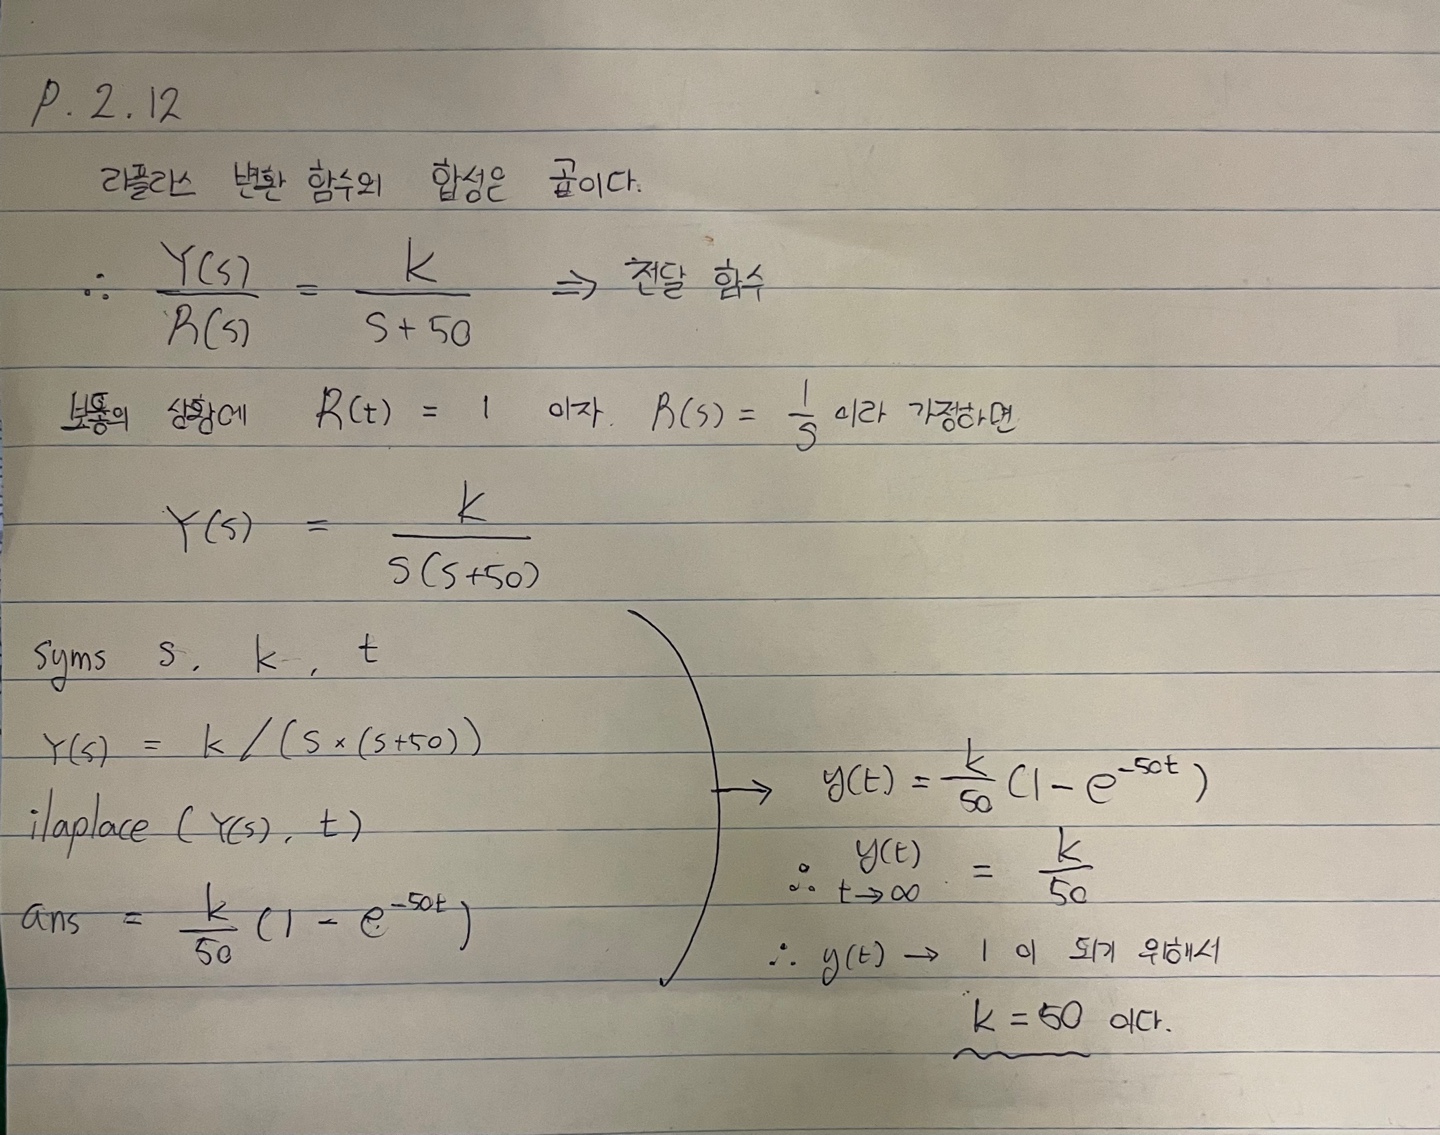 P. 2. 12
라플라스 변환 함수의 합성은 곱이다.
∴ Y(s)/R(s) = k/(s+50) ⇒ 전달 함수
보통의 상황에 R(t) = 1 이자. R(s) = 1/s 이라 가정하면
Y(s) = k/(s(s+50))
syms s, k, t
Y(s) = k/(s×(s+50))
ilaplace (Y(s), t)
ans = k/50 (1 - e^-50t)
→ y(t) = k/50 (1 - e^-50t)
∴ y(t) t→∞ = k/50
∴ y(t) → 1 이 되기 위해서
k = 50 이다.